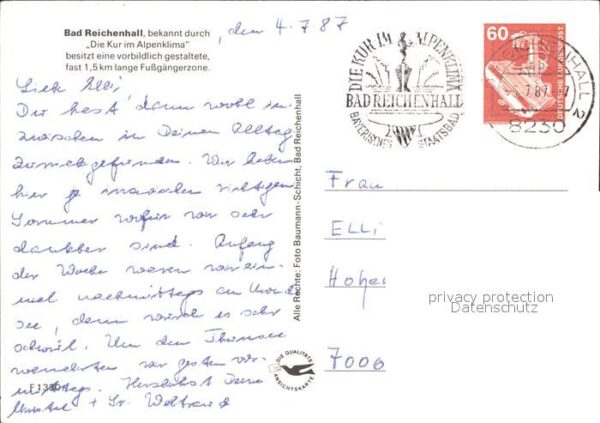 Bad Reichenhall, bekannt durch
„Die Kur im Alpenklima"
besitzt eine vorbildlich gestaltete,
fast 1,5 km lange Fußgängerzone.
, den 4.7.87
Liebe Elli!
Du hast dann wohl in
zwischen in Deinen Alltag
zurückgefunden. Wir haben
hier ja richtigen
Sommer wofür wir sehr
dankbar sind. Anfang
der Woche waren wir ein-
mal nachmittags am
see, dann wurde es sehr
schwül. Um den Thumsee
wanderten wir gesten vor-
mittags. Herzlichst Deine
+ Sr. Waltraud
F 1330
Alle Rechte: Foto Baumann-Schicht, Bad Reichenhall
DIE QUALITÄTS
ANSICHTSKARTE
DIE KUR IM ALPENKLIMA
BAD REICHENHALL
BAYERISCHES STAATSBAD
60
DEUTSCHE BUNDESPOST
HALL 2
7.87
8230
Frau
ELLi
Hoher
7000
privacy protection
Datenschutz